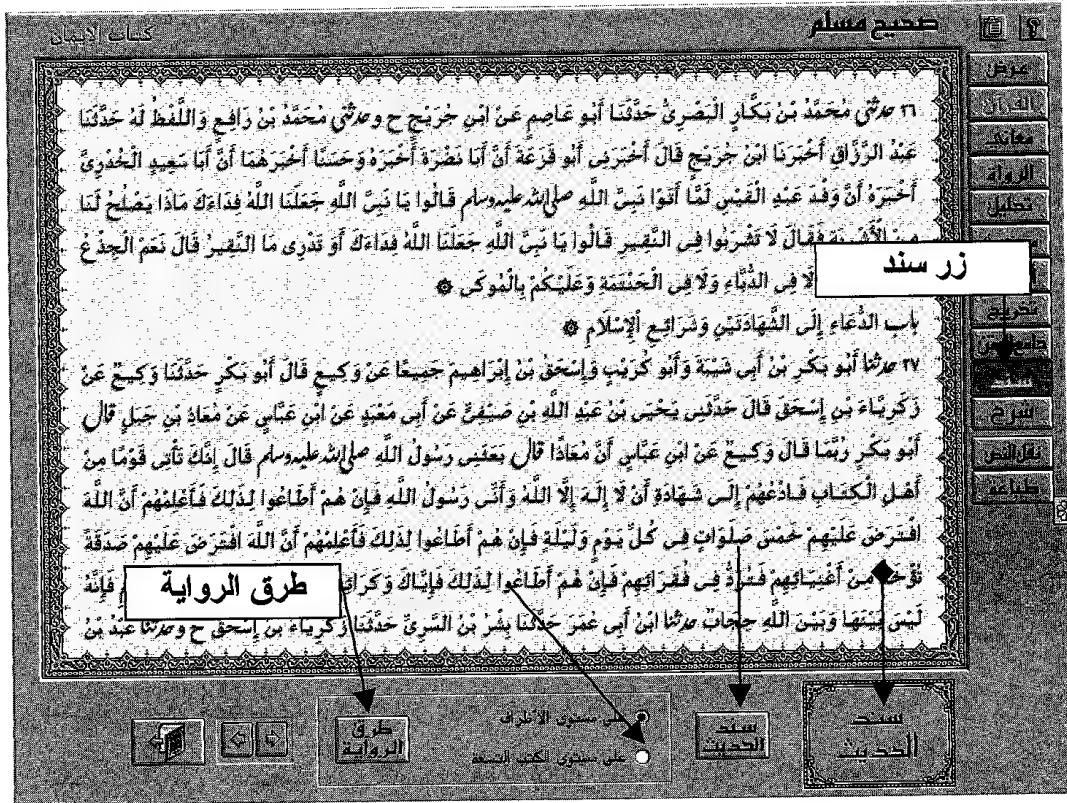 صحيح مسلم
كتاب الإيمان
عرض
القرآن
معاني
الرواة
تحليل
تخريج
سند
شرح
نقل النص
طباعة
٢٦ حدثني مُحَمَّدُ بْنُ بَكَّارٍ الْبَصْرِيُّ حَدَّثَنَا أَبُو عَاصِمٍ عَنْ ابْنِ جُرَيْجٍ ح و حدثني مُحَمَّدُ بْنُ رَافِعٍ وَاللَّفْظُ لَهُ حَدَّثَنَا
عَبْدُ الرَّزَّاقِ أَخْبَرَنَا ابْنُ جُرَيْجٍ قَالَ أَخْبَرَنِي أَبُو قَزَعَةَ أَنَّ أَبَا نَضْرَةَ أَخْبَرَهُ وَحَسَنًا أَخْبَرَهُمَا أَنَّ أَبَا سَعِيدٍ الْخُدْرِيَّ
أَخْبَرَهُ أَنَّ وَفْدَ عَبْدِ الْقَيْسِ لَمَّا أَتَوْا نَبِيَّ اللَّهِ صلى الله عليه وسلم قَالُوا يَا نَبِيَّ اللَّهِ جَعَلَنَا اللَّهُ فِدَاءَكَ مَاذَا يَصْلُحُ لَنَا
مِنْ الْأَشْرِبَةِ فَقَالَ لَا تَشْرَبُوا فِي النَّقِيرِ قَالُوا يَا نَبِيَّ اللَّهِ جَعَلَنَا اللَّهُ فِدَاءَكَ أَوَ تَدْرِي مَا النَّقِيرُ قَالَ نَعَمْ الْجِذْعُ
زر سند
لَا فِي الدُّبَّاءِ وَلَا فِي الْحَنْتَمَةِ وَعَلَيْكُمْ بِالْمُوكَى
باب الدُّعَاءِ إِلَى الشَّهَادَتَيْنِ وَشَرَائِعِ الْإِسْلَامِ
٢٧ حدثنا أَبُو بَكْرِ بْنُ أَبِي شَيْبَةَ وَأَبُو كُرَيْبٍ وَإِسْحَقُ بْنُ إِبْرَاهِيمَ جَمِيعًا عَنْ وَكِيعٍ قَالَ أَبُو بَكْرٍ حَدَّثَنَا وَكِيعٌ عَنْ
زَكَرِيَّاءَ بْنِ إِسْحَقَ قَالَ حَدَّثَنِي يَحْيَى بْنُ عَبْدِ اللَّهِ بْنِ صَيْفِيٍّ عَنْ أَبِي مَعْبَدٍ عَنْ ابْنِ عَبَّاسٍ عَنْ مُعَاذِ بْنِ جَبَلٍ قال
أَبُو بَكْرٍ رُبَّمَا قَالَ وَكِيعٌ عَنْ ابْنِ عَبَّاسٍ أَنَّ مُعَاذًا قال بَعَثَنِي رَسُولُ اللَّهِ صلى الله عليه وسلم قَالَ إِنَّكَ تَأْتِي قَوْمًا مِنْ
أَهْلِ الْكِتَابِ فَادْعُهُمْ إِلَى شَهَادَةِ أَنْ لَا إِلَهَ إِلَّا اللَّهُ وَأَنِّي رَسُولُ اللَّهِ فَإِنْ هُمْ أَطَاعُوا لِذَلِكَ فَأَعْلِمْهُمْ أَنَّ اللَّهَ
افْتَرَضَ عَلَيْهِمْ خَمْسَ صَلَوَاتٍ فِي كُلِّ يَوْمٍ وَلَيْلَةٍ فَإِنْ هُمْ أَطَاعُوا لِذَلِكَ فَأَعْلِمْهُمْ أَنَّ اللَّهَ افْتَرَضَ عَلَيْهِمْ صَدَقَةً
تُؤْخَذُ مِنْ أَغْنِيَائِهِمْ فَتُرَدُّ فِي فُقَرَائِهِمْ فَإِنْ هُمْ أَطَاعُوا لِذَلِكَ فَإِيَّاكَ وَكَرَائِ فَإِنَّهُ
طرق الرواية
لَيْسَ بَيْنَهَا وَبَيْنَ اللَّهِ حِجَابٌ حدثنا ابْنُ أَبِي عُمَرَ حَدَّثَنَا بِشْرُ بْنُ السَّرِيِّ حَدَّثَنَا زَكَرِيَّاءُ بْنُ إِسْحَقَ ح و حدثنا عَبْدُ بْنُ
سند الحديث
سند الحديث
على مستوى الأطراف
على مستوى الكتب التسعة
طرق الرواية